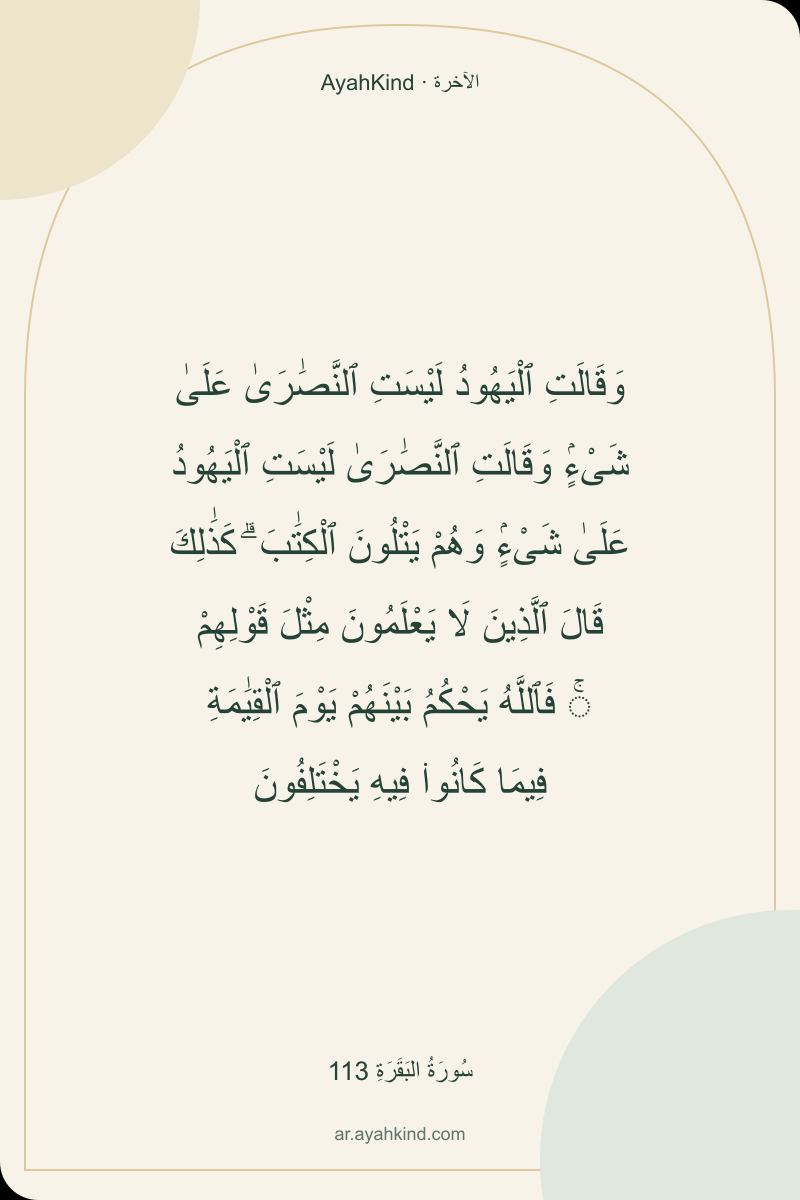 AyahKind · الآخرة
وَقَالَتِ ٱلْيَهُودُ لَيْسَتِ ٱلنَّصَٰرَىٰ عَلَىٰ
شَىْءٍۢ وَقَالَتِ ٱلنَّصَٰرَىٰ لَيْسَتِ ٱلْيَهُودُ
عَلَىٰ شَىْءٍۢ وَهُمْ يَتْلُونَ ٱلْكِتَٰبَ ۗ كَذَٰلِكَ
قَالَ ٱلَّذِينَ لَا يَعْلَمُونَ مِثْلَ قَوْلِهِمْ
ۚ فَٱللَّهُ يَحْكُمُ بَيْنَهُمْ يَوْمَ ٱلْقِيَٰمَةِ
فِيمَا كَانُوا۟ فِيهِ يَخْتَلِفُونَ
سُورَةُ البَقَرَةِ 113
ar.ayahkind.com